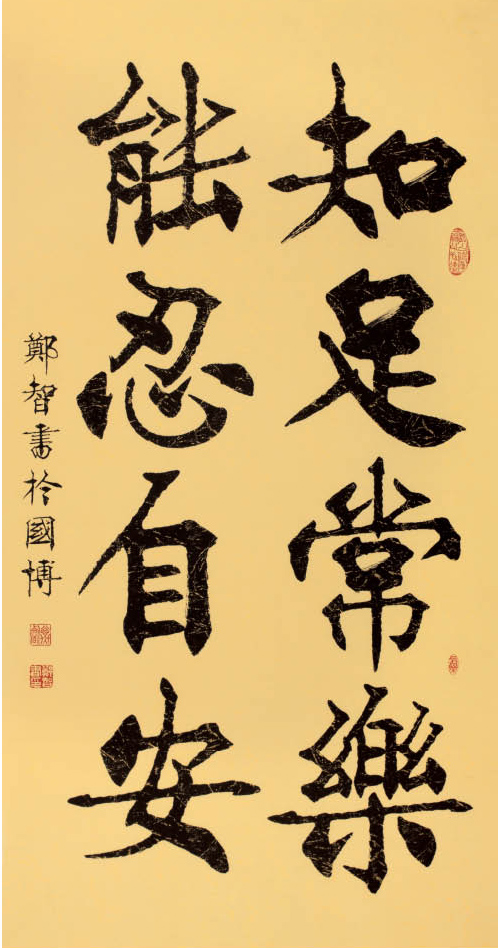 知足常樂
能忍自安
鄭智書於國博